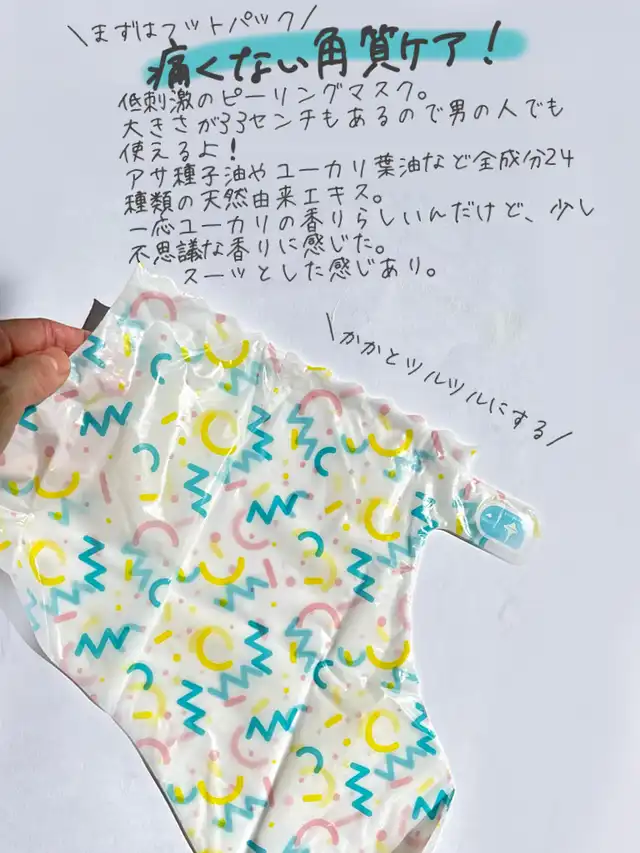 \まずはフットパック/
痛くない角質ケア!
低刺激のピーリングマスク。
大きさが33センチもあるので男の人でも
使えるよ!
アサ種子油やユーカリ葉油など全成分24
種類の天然由来エキス。
一応ユーカリの香りらしいんだけど、少し
不思議な香りに感じた。
スーッとした感じあり。
\かかとツルツルにする/